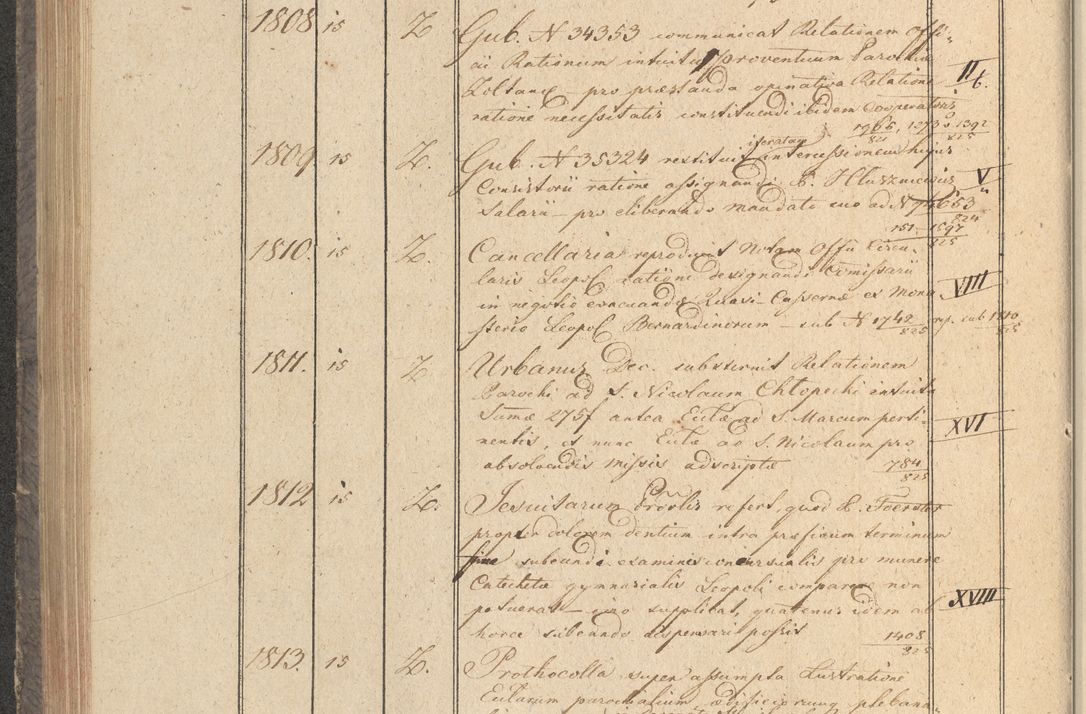 1808 15 Z. Gub. N 34353 communicat Relationem Offi-
cii Rationum intuitu Proventuum Parochiæ
Zoltance pro præstanda opinativa Relatione II b.
ratione necessitatis constituendi ibidem Cooperatoris
1265/821, 1273 1392/825
iteratam
1809 15 Z. Gub. N 35324 restituit intercessionem hujus
Consistorii ratione assignandi P. Hluszniewicz V
Salarii pro eliberando mandati suo ad N 653/824
151 1597/825
1810. 15 Z. Cancellaria reproducit Notam Offii Circu-
laris Leopol. ratione designandi Comissarii
in negotio evacuandæ Quasi-Cassernæ ex Mona- VIII
sterio Leopol Bernardinorum sub N 1742/825 rep. sub 1810/825
1811. 15 Z. Urbanus Dec. substernit Relationem
Parochi ad S. Nicolaum Chlopecki intuitu
Sumæ 275f antea Ecclæ ad S. Marcum perti- XVI
nentis, et nunc Ecclæ ad S. Nicolaum pro
absolvendis missis adscriptæ 784/825
1812 15 Z. Jesuitarum refert, quod P. Foerster
propter dolorem dentium intra præfixum terminum
subeundi examinis concursualis pro munere
Catechetæ gymnasialis Leopoli comparere non
potuerat imo supplicat, quatenus idem ab XVIII
hocce subeundo dispensari possit 1408/825
1813. 15 Z. Prothocolla super assumpta Lustratione
Ecclarum parochialium, ædificiorumq plebana-